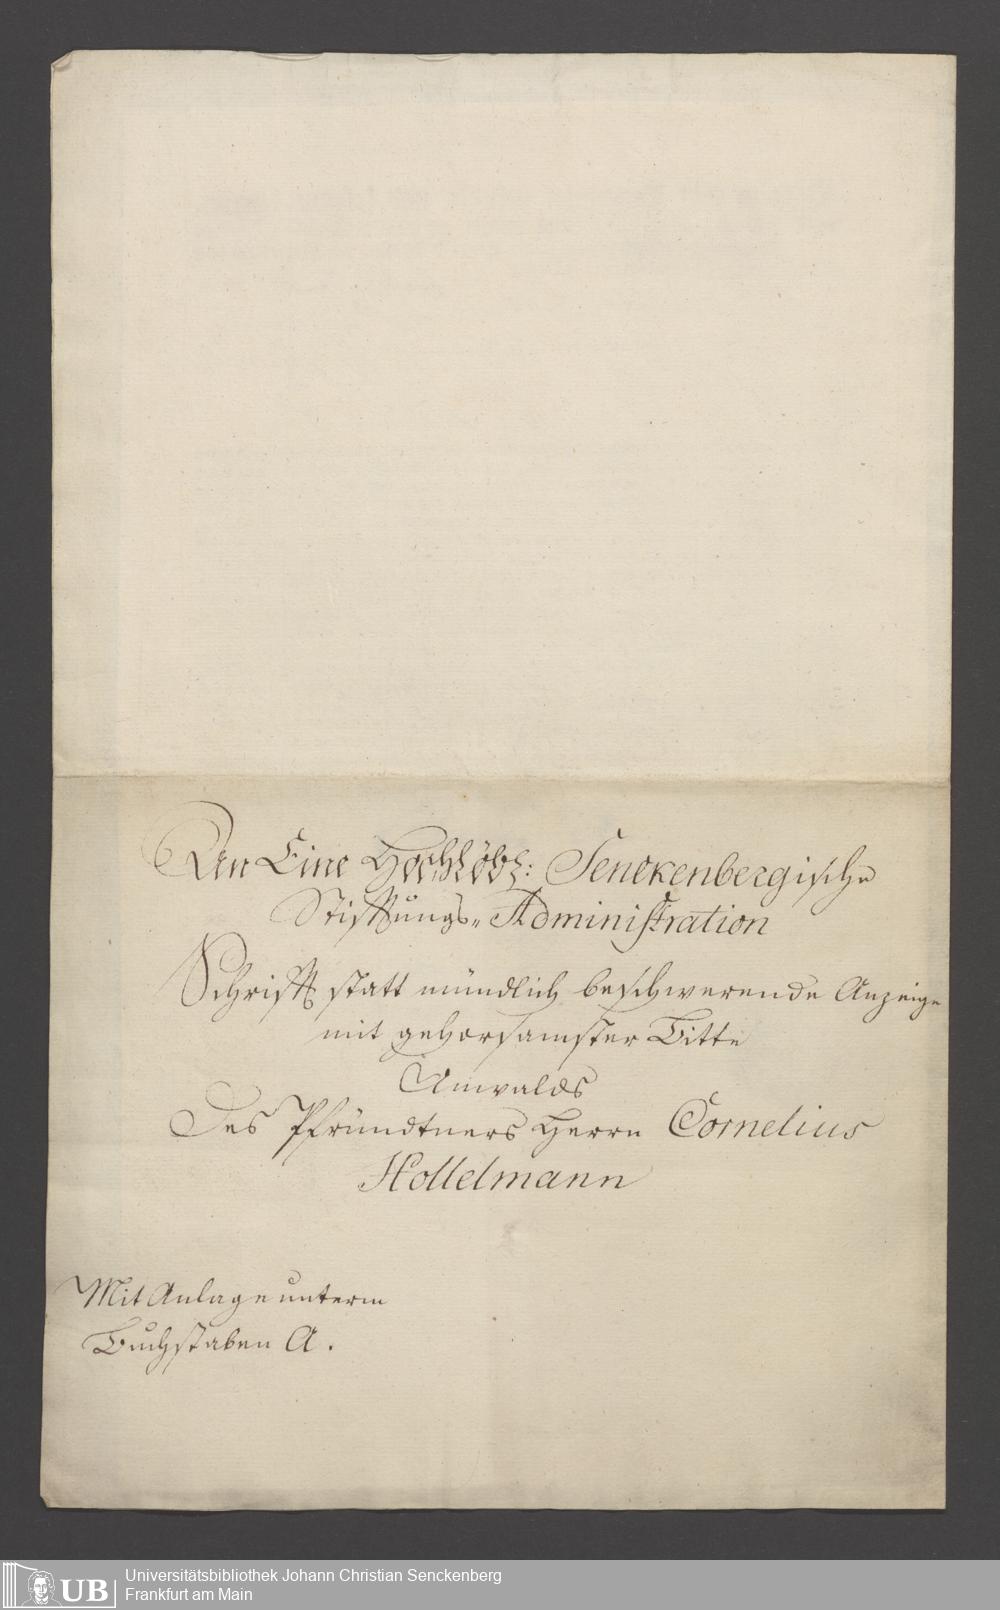 An Eine Hochlöbl: Senckenbergische
Stifftungs-Administration
Schrifft statt mündlich beschwerende Anzeige
mit gehorsamster Bitte
Anwalds
Des Pfründtners Herrn Cornelius
Hollelmann
Mit Anlage unterm
Buchstaben A.
UB
Universitätsbibliothek Johann Christian Senckenberg
Frankfurt am Main